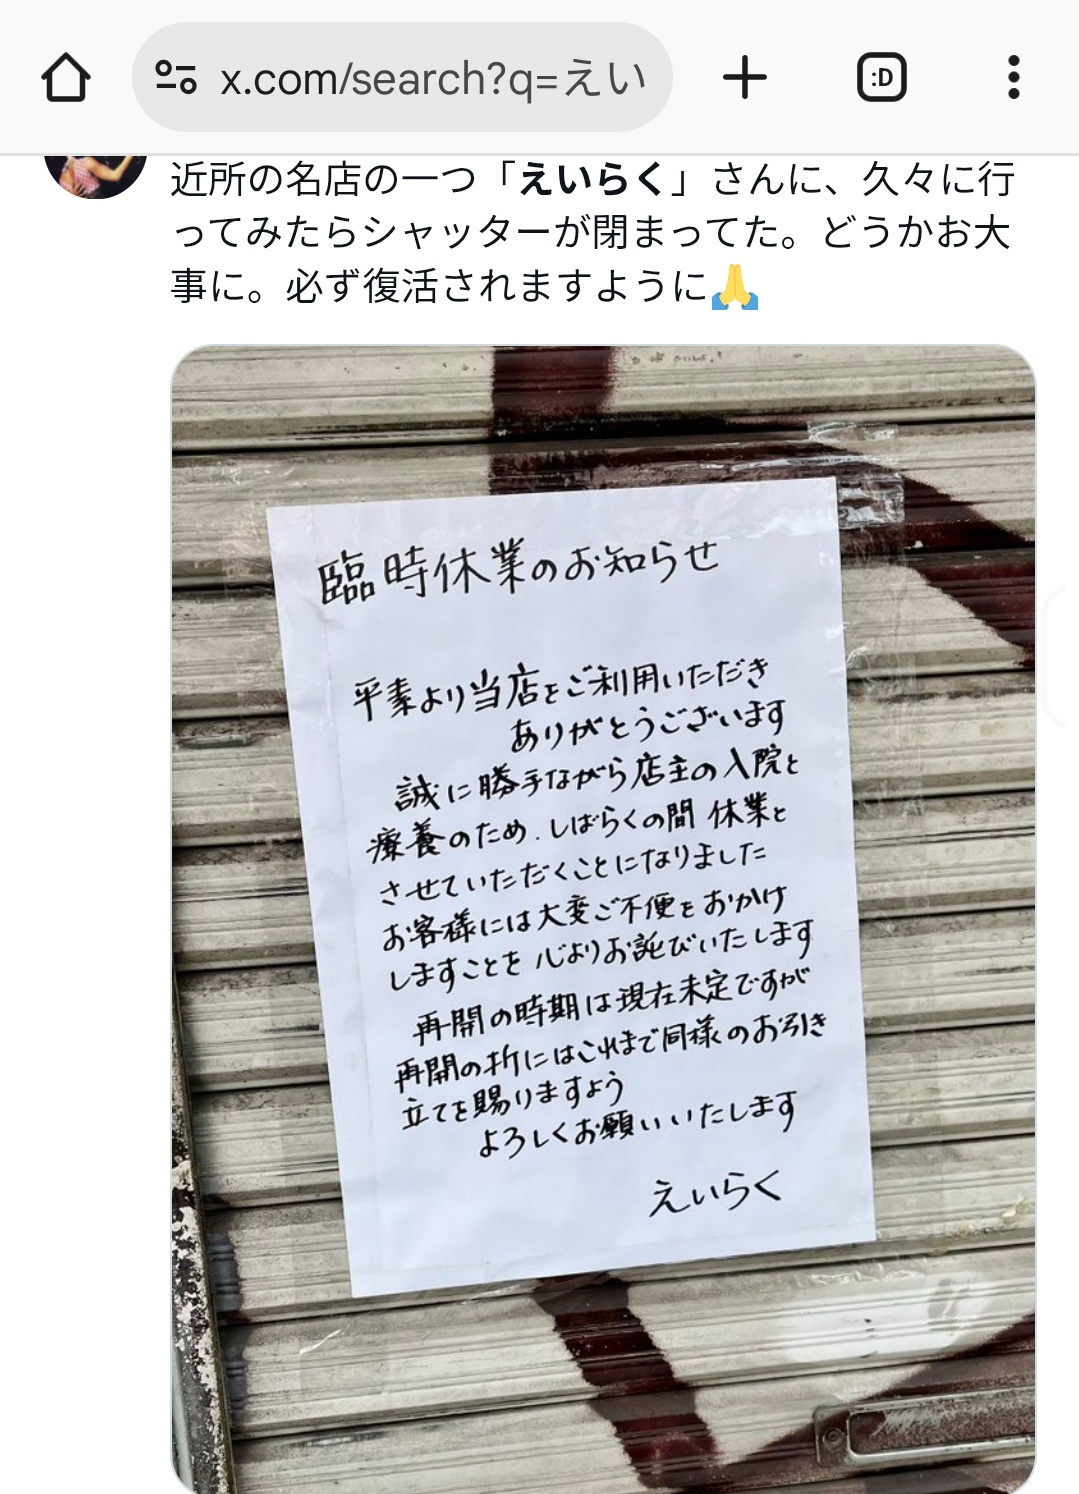 x.com/search?q=えい
:D
近所の名店の一つ「えいらく」さんに、久々に行
ってみたらシャッターが閉まってた。どうかお大
事に。必ず復活されますように🙏
臨時休業のお知らせ
平素より当店をご利用いただき
ありがとうございます
誠に勝手ながら店主の入院と
療養のため、しばらくの間 休業と
させていただくことになりました
お客様には大変ご不便をおかけ
しますことを心よりお詫びいたします
再開の時期は現在未定ですが
再開の折にはこれまで同様のお引き
立てを賜りますよう
よろしくお願いいたします
えいらく